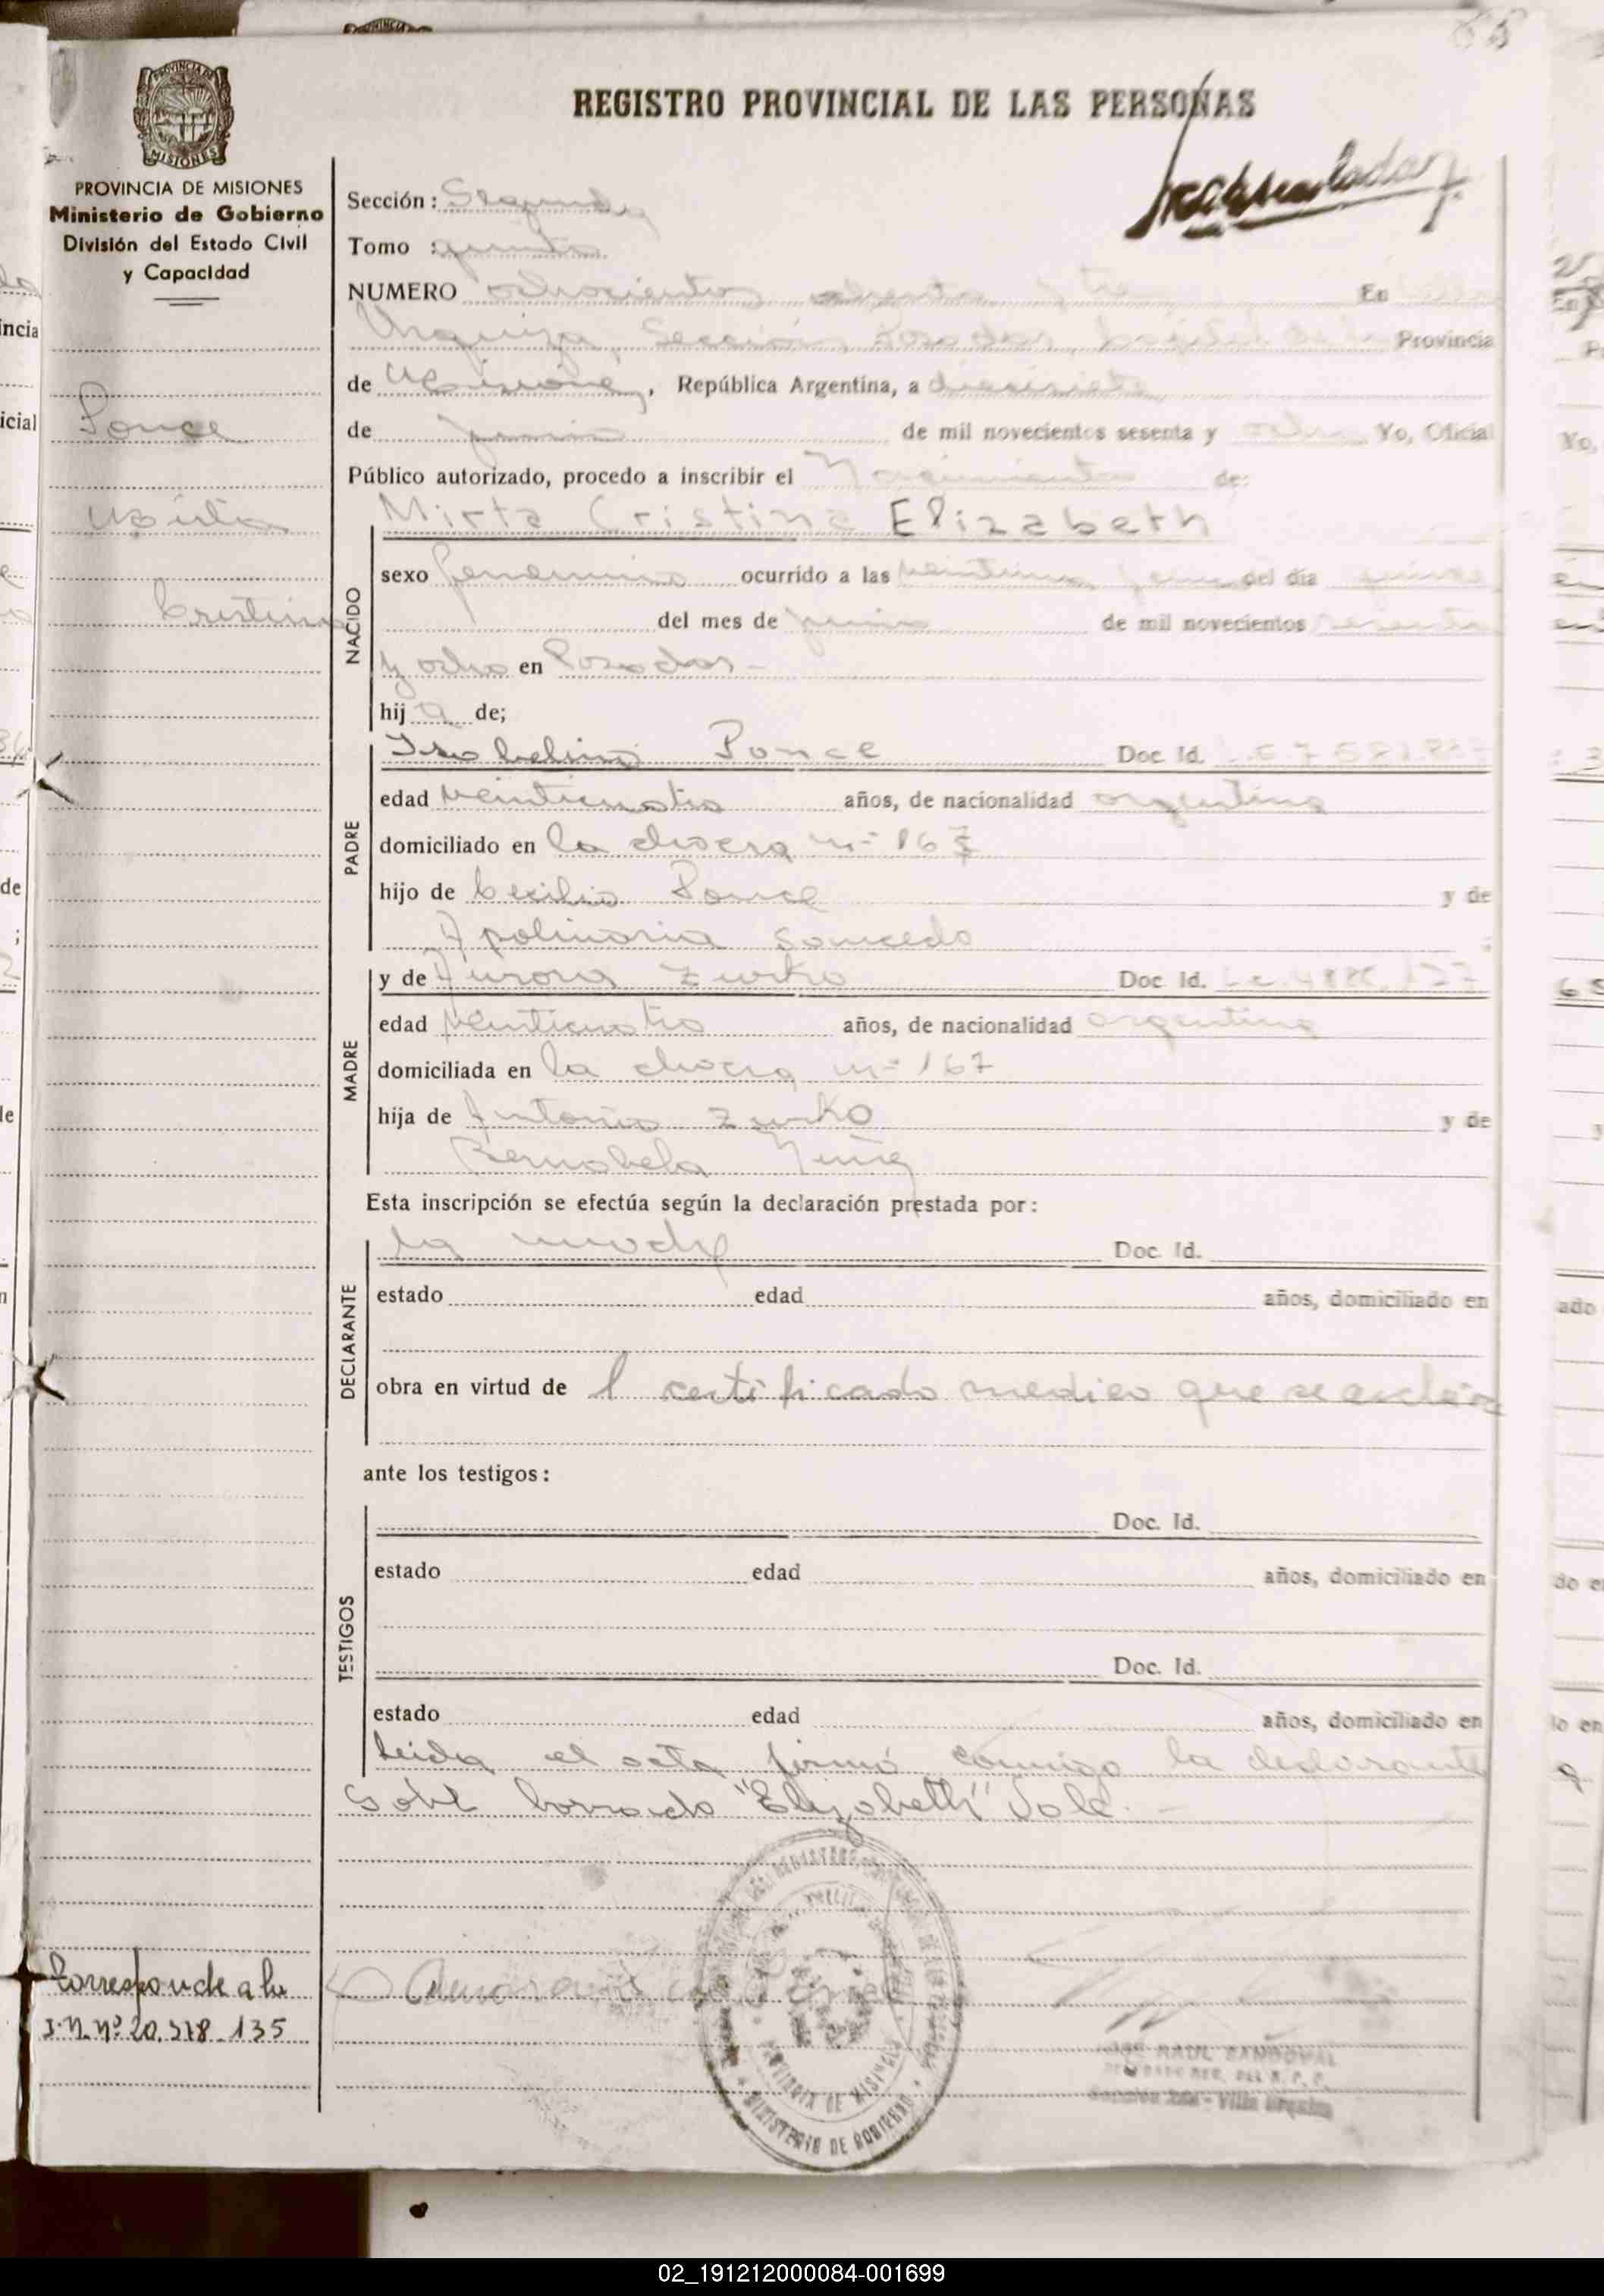 REGISTRO PROVINCIAL DE LAS PERSONAS
PROVINCIA DE MISIONES
Ministerio de Gobierno
División del Estado Civil
y Capacidad
Ponce
Mirta
Cristina
Sección: Segunda
Tomo : quinto
NUMERO ochocientos ochenta y tres En Villa
Urquiza, Sección Posadas, capital de la Provincia
de Misiones, República Argentina, a diecisiete
de junio de mil novecientos sesenta y ocho Yo, Oficial
Público autorizado, procedo a inscribir el Nacimiento de:
Mirta Cristina Elizabeth
NACIDO
sexo femenino ocurrido a las veintiuna del día quince
del mes de junio de mil novecientos sesenta
y ocho en Posadas-
hij a de;
PADRE
Ponce Doc. Id.
edad veinticuatro años, de nacionalidad argentina
domiciliado en la chacra nº 167
hijo de Cecilio Ponce y de
Apolinaria Saucedo
MADRE
y de Aurora Zurko Doc. Id.
edad veinticuatro años, de nacionalidad argentina
domiciliada en la chacra nº 167
hija de Antonio Zurko y de
Bernabela
Esta inscripción se efectúa según la declaración prestada por:
DECLARANTE
la madre Doc. Id.
estado edad años, domiciliado en
obra en virtud de l certificado medico que se archiva
ante los testigos:
TESTIGOS
Doc. Id.
estado edad años, domiciliado en
Doc. Id.
estado edad años, domiciliado en
Leida el acta firmó conmigo la declarante
Sobre borrado "Elizabeth" Vale.-
Corresponde a la
I.N. Nº 20.518.135
PROVINCIA DE MISIONES
MINISTERIO DE GOBIERNO
RAUL SANDOVAL
Villa Urquiza
02_191212000084-001699